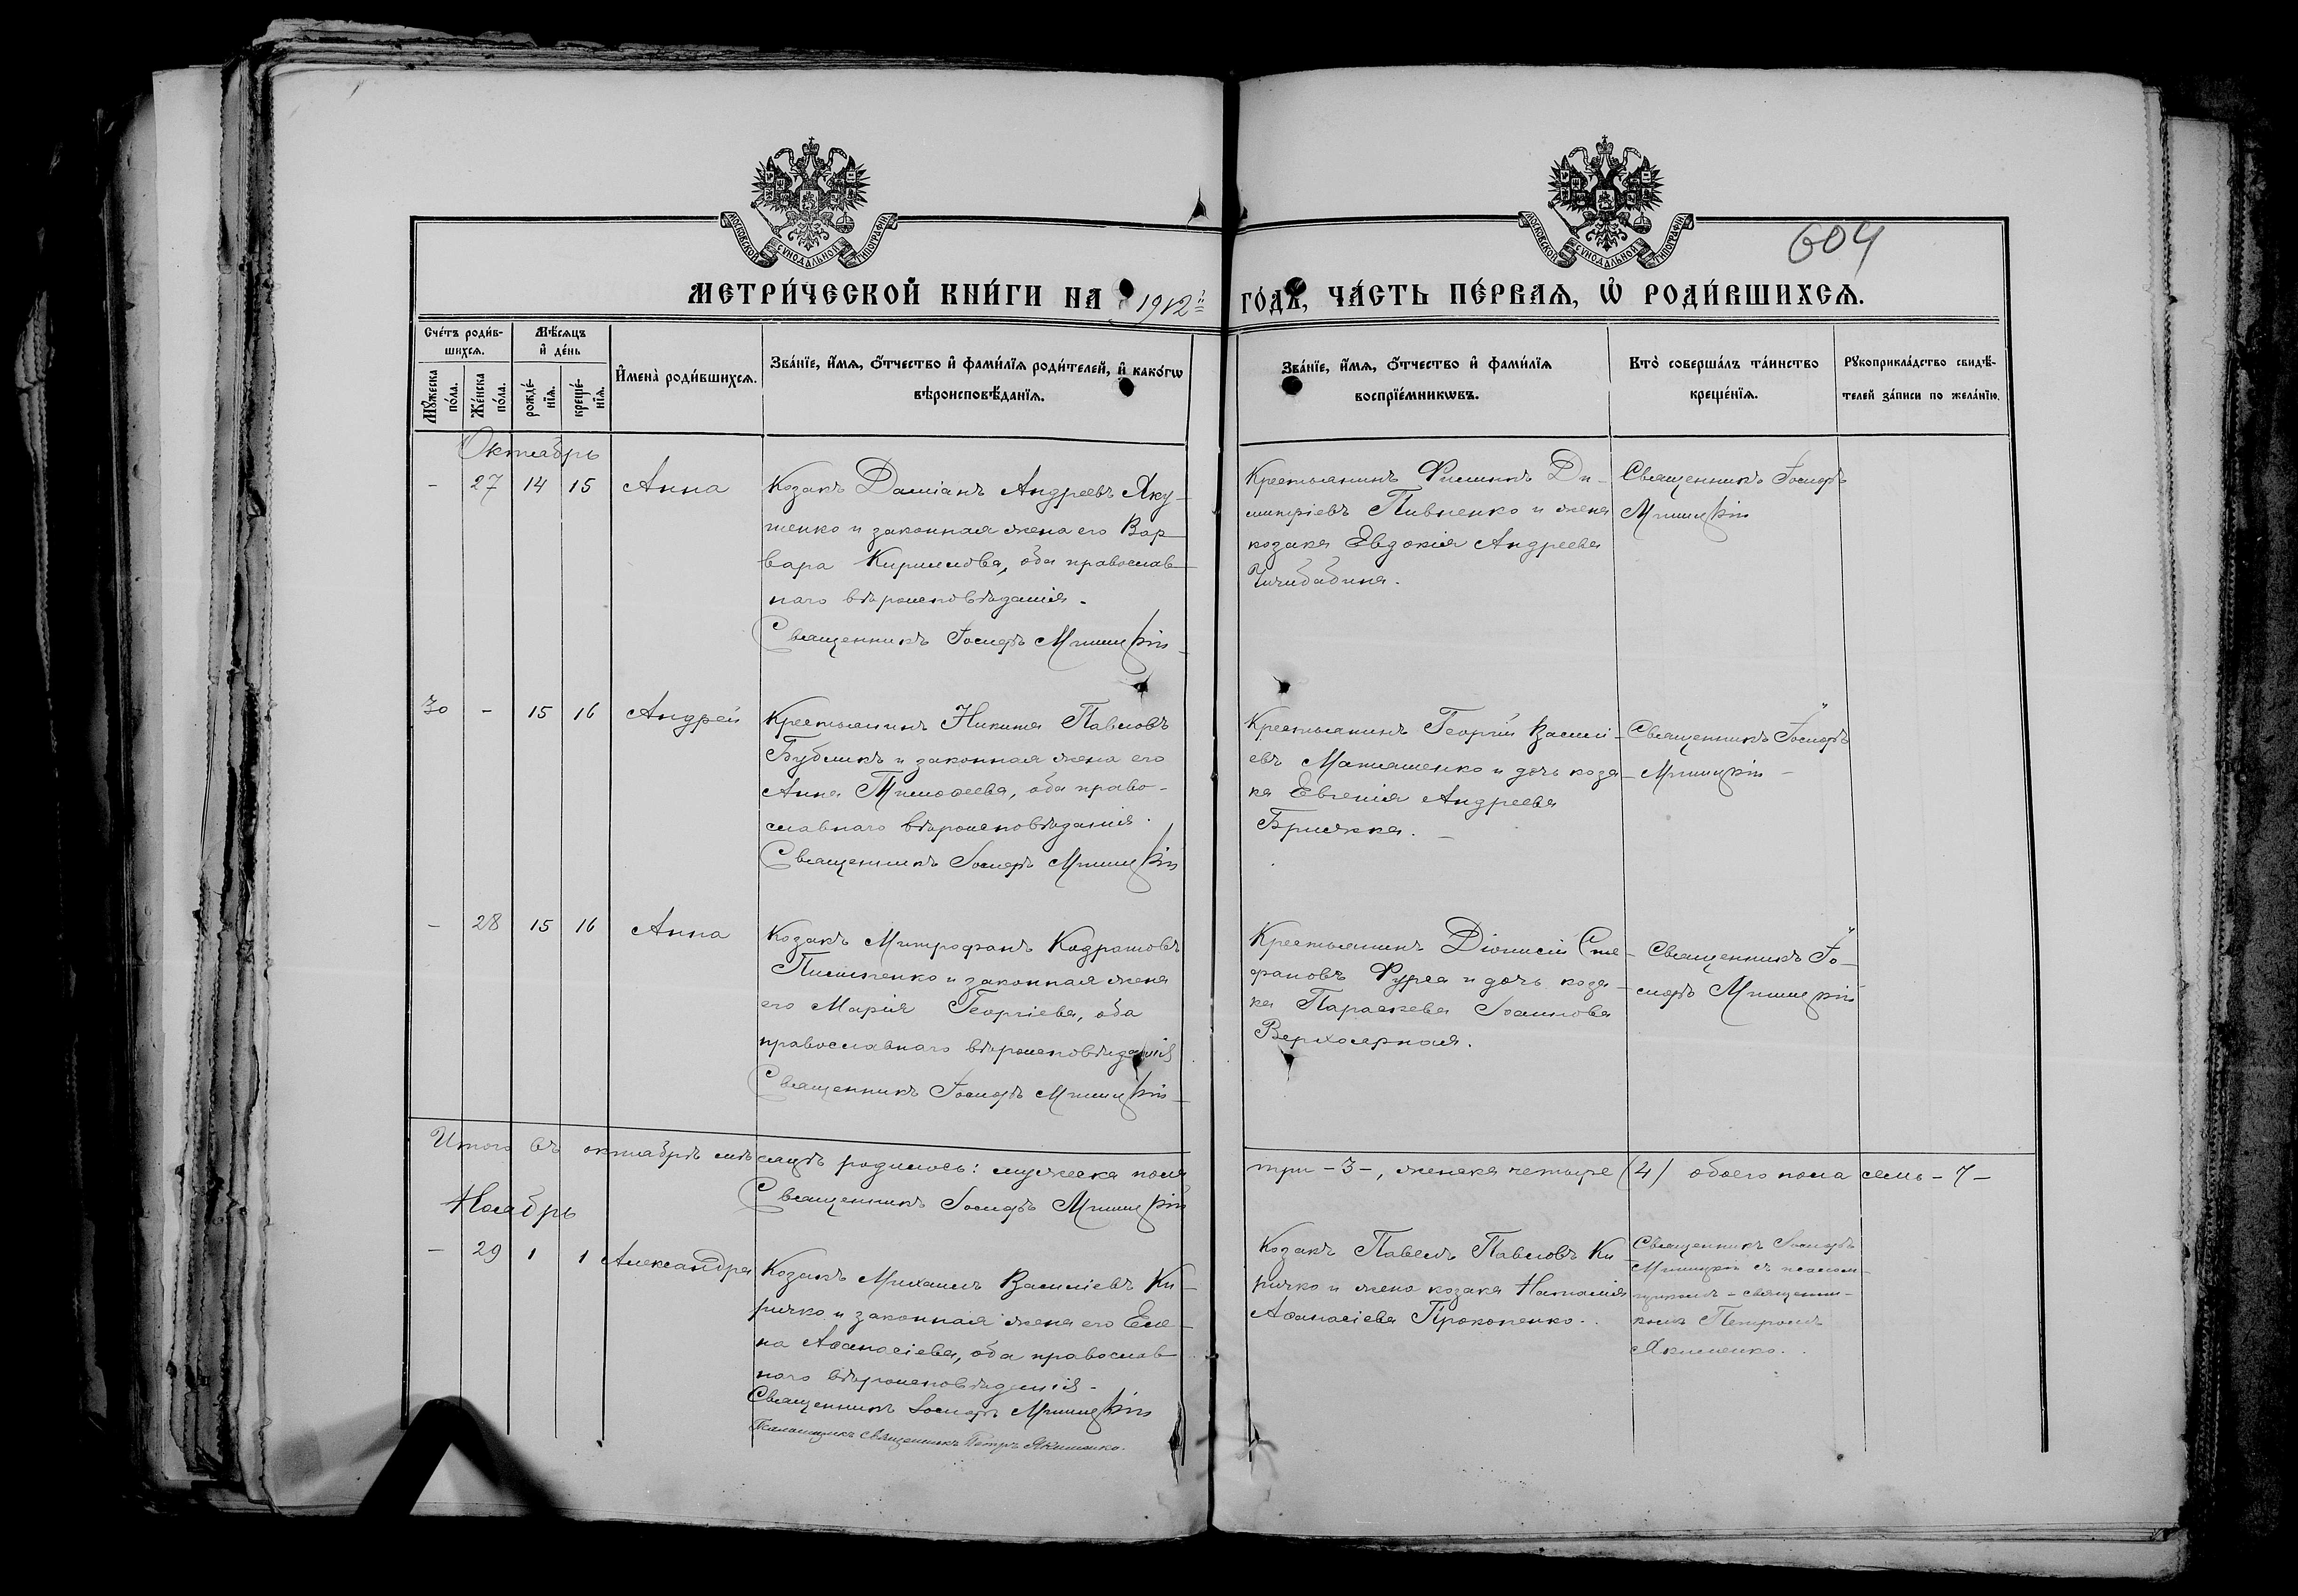 МОСКОВСКОЙ СѴНОДАЛЬНОЙ ТИПОГРАФІИ
МОСКОВСКОЙ СѴНОДАЛЬНОЙ ТИПОГРАФІИ
604
МЕТРИ́ЧЕСКОЙ КНИ́ГИ НА 1912й ГО́ДЪ, ЧА́СТЬ ПЕ́РВАѦ, Ѽ РОДИ́ВШИХСѦ.
Сче́тъ роди́в-
шихсѧ.
Мѣ́сѧцъ
и҆ де́нь
Мꙋ́жеска
по́ла.
Же́нска
по́ла.
рожде́-
нїѧ.
креще́-
нїѧ.
И҆мена̀ роди́вшихсѧ.
Зва́нїе, и҆́мѧ, ѻ҆́тчество и҆ фами́лїѧ роди́телей, и҆ како́гѡ
вѣроисповѣ́данїѧ.
Зва́нїе, и҆́мѧ, ѻ҆́тчество и҆ фами́лїѧ
воспрїе́мникѡвъ.
Кто̀ соверша́лъ та́инство
креще́нїѧ.
Рꙋкоприкла́дство свидѣ́-
телей за́писи по жела́нїю.
Октябрь
- 27 14 15 Анна
Козакъ Даміанъ Андреевъ Яку-
тенко и законная жена его Вар-
вара Кириллова, оба православ-
наго вѣроисповѣданія.
Священникъ Іосифъ
Крестьянинъ Филиппъ Ди-
митріевъ Пивненко и жена
козака Евдокія Андреева
Чичибабина.
Священникъ Іосифъ
30 - 15 16 Андрей
Крестьянинъ Никита Павловъ
Бубликъ и законная жена его
Анна Тимоѳеева, оба право-
славнаго вѣроисповѣданія.
Священникъ Іосифъ
Крестьянинъ Георгій Васил-
евъ Матяшенко и дочь коза-
ка Евгенія Андреева
Бряжка.
Священникъ Іосифъ
- 28 15 16 Анна
Козакъ Митрофанъ Кодратовъ
и законная жена
его Марія Георгіева, оба
православнаго вѣроисповѣданія
Священникъ Іосифъ
Крестьянинъ Діонисій Сте-
фановъ Фурса и дочь коза-
ка Параскева Іоаннова
Священникъ Іо-
сифъ
Итого въ октябрѣ мѣсяцѣ родилось: мужеска пола три -3-, женска четыре (4) обоего пола семь -7-
Священникъ Іосифъ
Ноябрь
- 29 1 1 Александра
Козакъ Михаилъ Василіевъ Ки-
ричко и законная жена его Еле-
на Аѳанасіева, оба православ-
наго вѣроисповѣданія.
Священникъ Іосифъ
Псаломщикъ священникъ Петръ Якименко.
Козакъ Павелъ Павловъ Ки-
ричко и жена козака Наталія
Аѳанасіева Прокопенко.
Священникъ Іосифъ
съ псалом-
щикомъ - священни-
комъ Петромъ
Якименко.